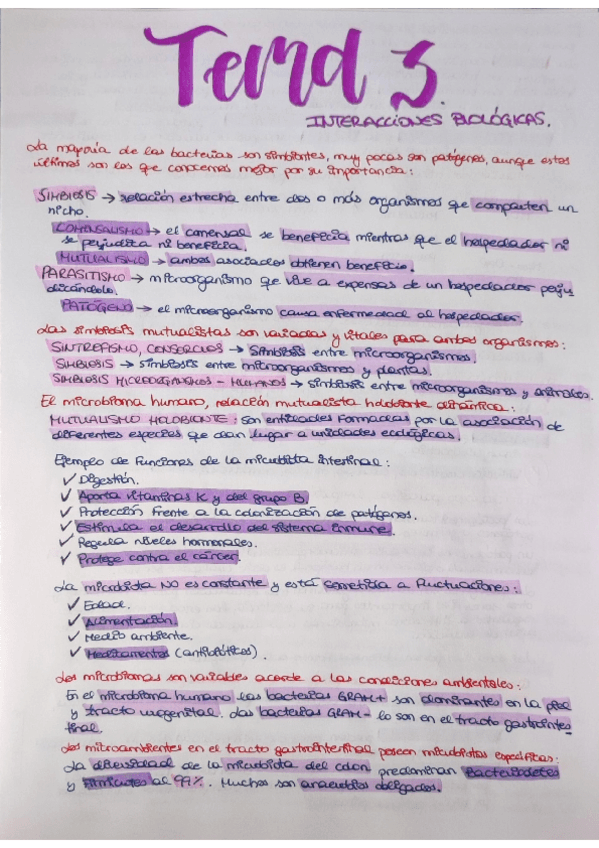 Tema 5.
INTERACCIONES BIOLÓGICAS.
La mayoría de las bacterias son simbiontes, muy pocas son patógenas, aunque estas
últimas son las que conocemos mejor por su importancia:
SIMBIOSIS → relación estrecha entre dos o más organismos que comparten un
nicho.
COMENSALISMO → el comensal se beneficia mientras que el hospedador ni
se perjudica ni beneficia.
MUTUALISMO → ambos asociados obtienen beneficio.
PARASITISMO → microorganismo que vive a expensas de un hospedador perju
dicándolo.
PATÓGENO → el microorganismo causa enfermedad al hospedador
Las simbiosis mutualistas son variadas y vitales para ambos organismos:
SINTROFISMO, CONSORCIOS → Simbiosis entre microorganismos.
SIMBIOSIS → simbiosis entre microorganismos y plantas.
SIMBIOSIS MICROORGANISMOS - HUMANOS → simbiosis entre microorganismos y animales.
El microbioma humano, relación mutualista holobionte dinámica:
MUTUALISMO HOLOBIONTE: Son entidades formadas por la asociación de
diferentes especies que dan lugar a unidades ecológicas.
Ejemplo de funciones de la microbiota intestinal:
✓ Digestión.
✓ Aporta vitaminas K y del grupo B.
✓ Protección frente a la colonización de patógenos.
✓ Estimula el desarrollo del sistema inmune.
✓ Regula niveles hormonales.
✓ Protege contra el cáncer.
La microbiota NO es constante y está sometida a fluctuaciones:
✓ Edad.
✓ Alimentación.
✓ Medio ambiente.
✓ Medicamentos (antibióticos).
Los microbiomas son variables acorde a las condiciones ambientales:
En el microbioma humano las bacterias GRAM+ son dominantes en la piel
y tracto urogenital. Las bacterias GRAM- lo son en el tracto gastrointes
tinal.
Los microambientes en el tracto gastrointestinal poseen microbiotas específicas:
La diversidad de la microbiota del colon predominan Bacteroidetes
y Firmicutes al 99%. Muchos son anaerobios obligados.